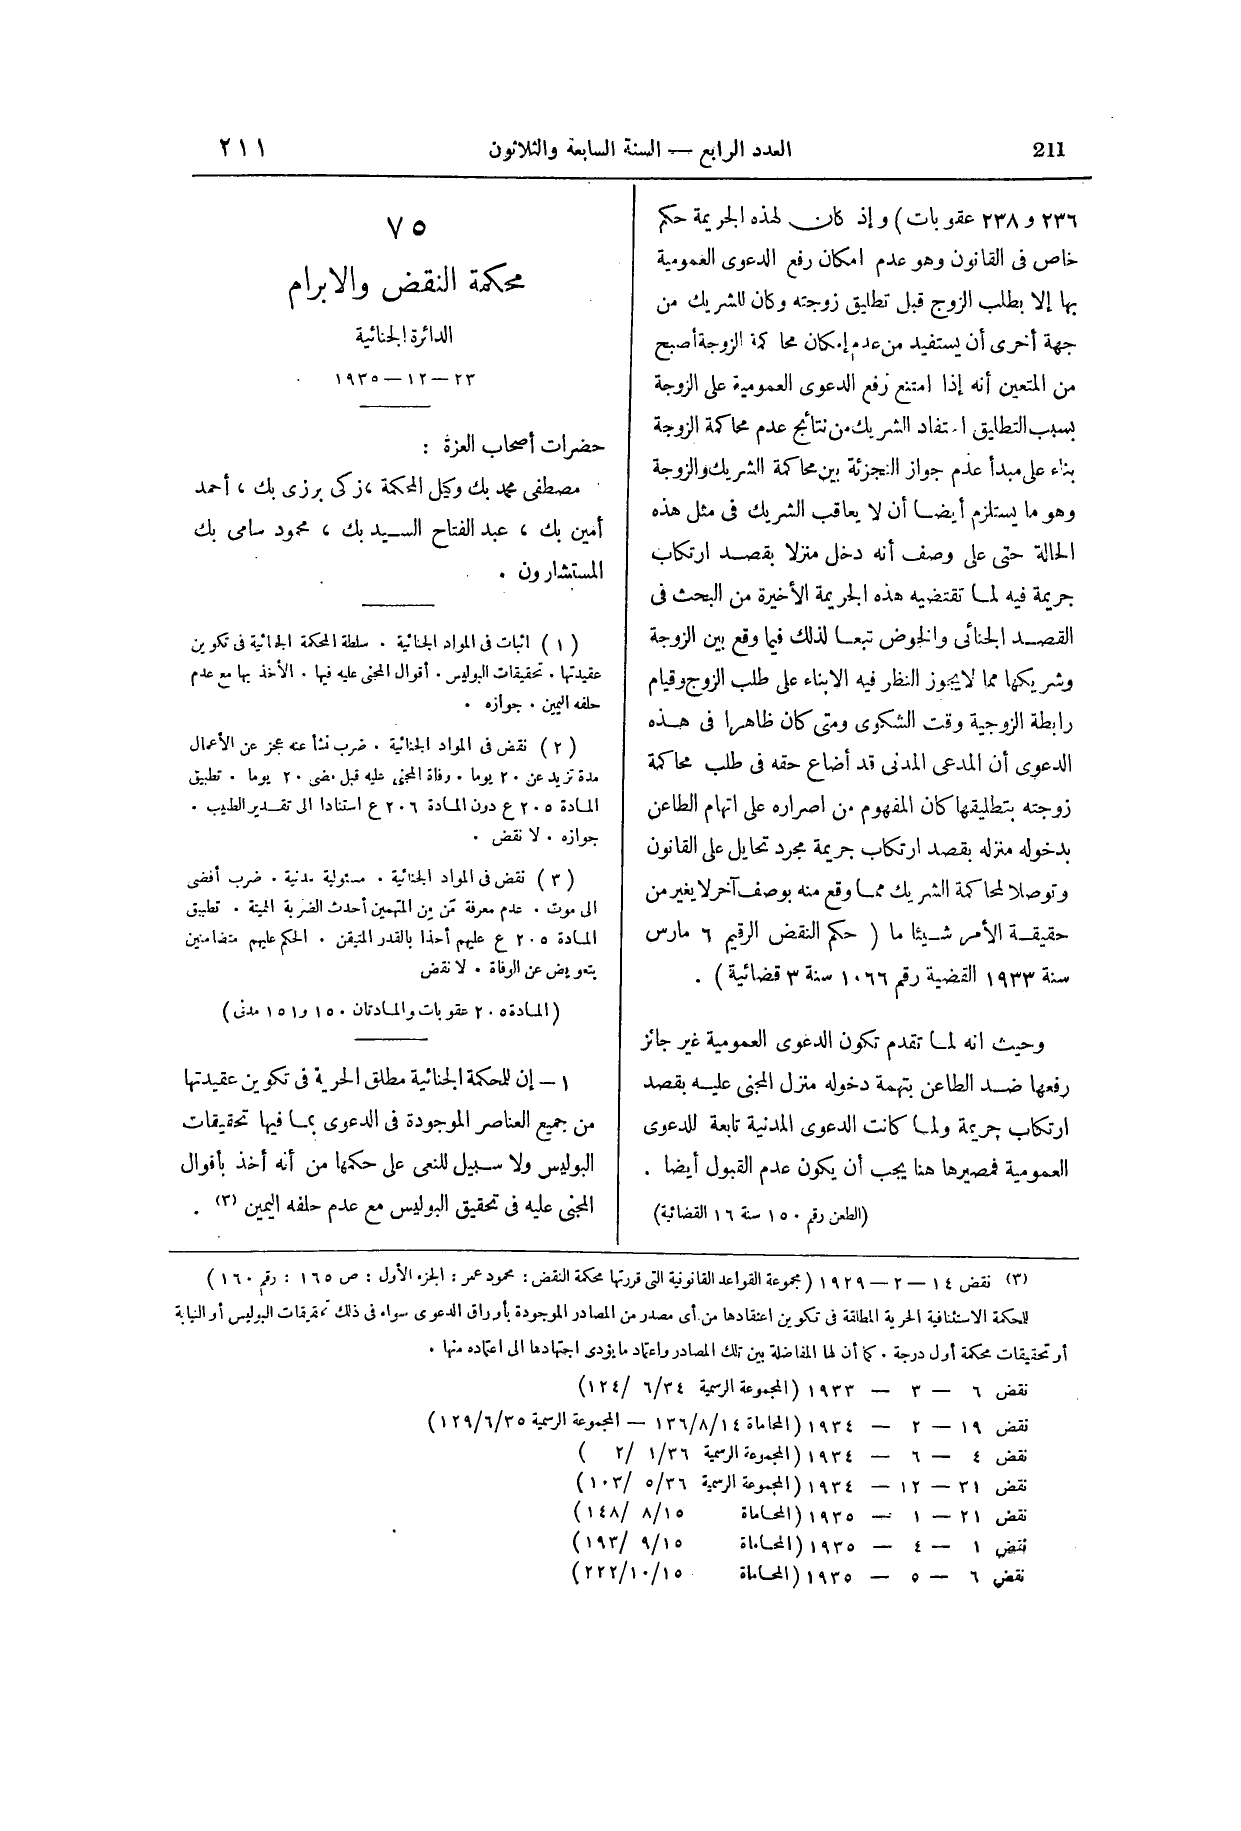 211
العدد الرابع — السنة السابعة والثلاثون
٢١١
٢٣٦ و ٢٣٨ عقوبات) وإذ كان لهذه الجريمة حكم
خاص فى القانون وهو عدم امكان رفع الدعوى العمومية
بها إلا بطلب الزوج قبل تطليق زوجته وكان للشريك من
جهة أخرى أن يستفيد من عدم إمكان محاكمة الزوجة أصبح
من المتعين أنه إذا امتنع رفع الدعوى العمومية على الزوجة
بسبب التطليق استفاد الشريك من نتائج عدم محاكمة الزوجة
بناء على مبدأ عدم جواز التجزئة بين محاكمة الشريك والزوجة
وهو ما يستلزم أيضا أن لا يعاقب الشريك فى مثل هذه
الحالة حتى على وصف أنه دخل منزلا بقصد ارتكاب
جريمة فيه لما تقتضيه هذه الجريمة الأخيرة من البحث فى
القصد الجنائى والخوض تبعا لذلك فيما وقع بين الزوجة
وشريكها مما لايجوز النظر فيه الابناء على طلب الزوج وقيام
رابطة الزوجية وقت الشكوى ومتى كان ظاهرا فى هذه
الدعوى أن المدعى المدنى قد أضاع حقه فى طلب محاكمة
زوجته بتطليقها كان المفهوم من اصراره على اتهام الطاعن
بدخوله منزله بقصد ارتكاب جريمة مجرد تحايل على القانون
وتوصلا لمحاكمة الشريك مما وقع منه بوصف آخر لا يغير من
حقيقة الأمر شيئا ما ( حكم النقض الرقيم ٦ مارس
سنة ١٩٣٣ القضية رقم ١٠٦٦ سنة ٣ قضائية ) .
وحيث انه لما تقدم تكون الدعوى العمومية غير جائز
رفعها ضد الطاعن بتهمة دخوله منزل المجنى عليه بقصد
ارتكاب جريمة ولما كانت الدعوى المدنية تابعة للدعوى
العمومية فمصيرها هنا يجب أن يكون عدم القبول أيضا .
(الطعن رقم ١٥٠ سنة ١٦ القضائية)
٧٥
محكمة النقض والابرام
الدائرة الجنائية
٢٣ — ١٢ — ١٩٣٥
حضرات أصحاب العزة :
مصطفى محمد بك وكيل المحكمة ، زكى برزى بك ، أحمد
أمين بك ، عبد الفتاح السيد بك ، محمود سامى بك
المستشارون .
( ١ ) اثبات فى المواد الجنائية . سلطة المحكمة الجنائية فى تكوين
عقيدتها . تحقيقات البوليس . أقوال المجنى عليه فيها . الأخذ بها مع عدم
حلفه اليمين . جوازه .
( ٢ ) نقض فى المواد الجنائية . ضرب نشأ عنه عجز عن الأعمال
مدة تزيد عن ٢٠ يوما . وفاة المجنى عليه قبل مضى ٢٠ يوما . تطبيق
المادة ٢٠٥ ع دون المادة ٢٠٦ ع استنادا الى تقدير الطبيب .
جوازه . لا نقض .
( ٣ ) نقض فى المواد الجنائية . مسئولية مدنية . ضرب أفضى
الى موت . عدم معرفة من من المتهمين أحدث الضربة المميتة . تطبيق
المادة ٢٠٥ ع عليهم أحذا بالقدر المتيقن . الحكم عليهم متضامنين
بتعويض عن الوفاة . لا نقض
( المادة ٢٠٥ عقوبات والمادتان ١٥٠ و ١٥١ مدنى )
١ — إن للمحكمة الجنائية مطلق الحرية فى تكوين عقيدتها
من جميع العناصر الموجودة فى الدعوى بما فيها تحقيقات
البوليس ولا سبيل للنعى على حكمها من أنه أخذ بأقوال
المجنى عليه فى تحقيق البوليس مع عدم حلفه اليمين (٣) .
(٣) نقض ١٤ — ٢ — ١٩٢٩ ( مجموعة القواعد القانونية التى قررتها محكمة النقض : محمود عمر : الجزء الأول : ص ١٦٥ : رقم ١٦٠ )
للمحكمة الاستئنافية الحرية المطلقة فى تكوين اعتقادها من أى مصدر من المصادر الموجودة بأوراق الدعوى سواء فى ذلك تحقيقات البوليس أو النيابة
أو تحقيقات محكمة أول درجة . كما أن لها المفاضلة بين تلك المصادر واعتماد ما يؤدى اجتهادها الى اعتماده منها .
نقض ٦ — ٣ — ١٩٣٣ (المجموعة الرسمية ٣٤/٦/ ١٢٤)
نقض ١٩ — ٢ — ١٩٣٤ (المحاماة ١٤/٨/١٣٦ — المجموعة الرسمية ٣٥/٦/١٢٩)
نقض ٤ — ٦ — ١٩٣٤ (المجموعة الرسمية ٣٦/١/ ٢ )
نقض ٣١ — ١٢ — ١٩٣٤ (المجموعة الرسمية ٣٦/٥/ ١٠٣)
نقض ٢١ — ١ — ١٩٣٥ (المحاماة ١٥/٨/ ١٤٨)
نقض ١ — ٤ — ١٩٣٥ (المحاماة ١٥/٩/ ١٩٣)
نقض ٦ — ٥ — ١٩٣٥ (المحاماة ١٥/١٠/٢٢٢)